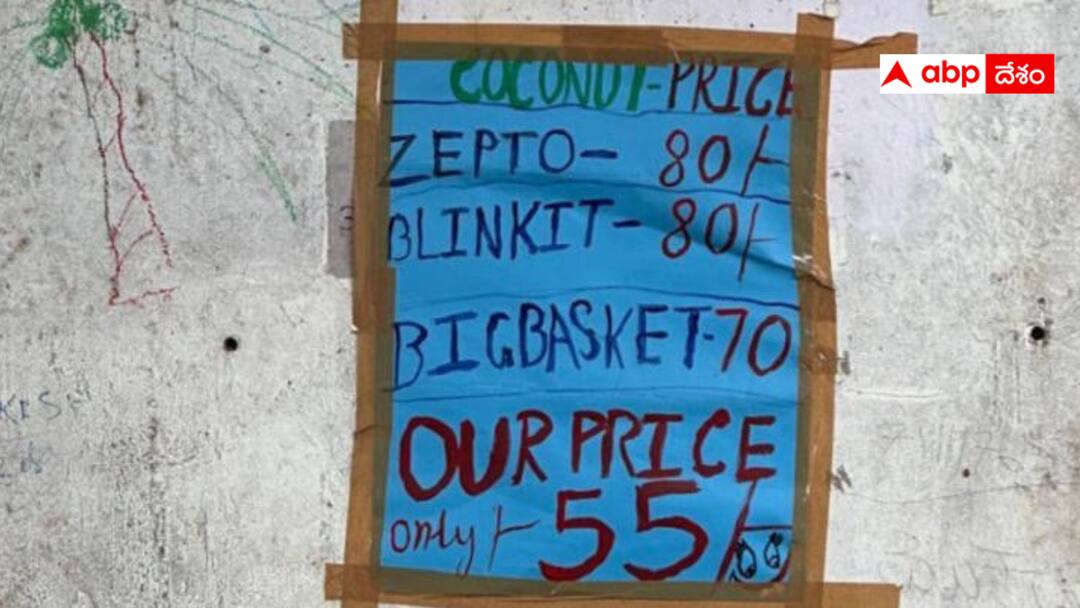 abp దేశం
COCONUT-PRICE
ZEPTO- 80/-
BLINKIT- 80/-
BIGBASKET-70
OUR PRICE
only/- 55/-